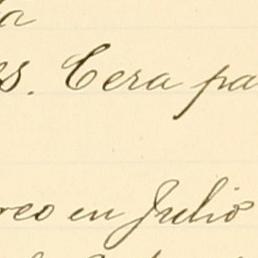 la
es. Cera pa
reo en Julio